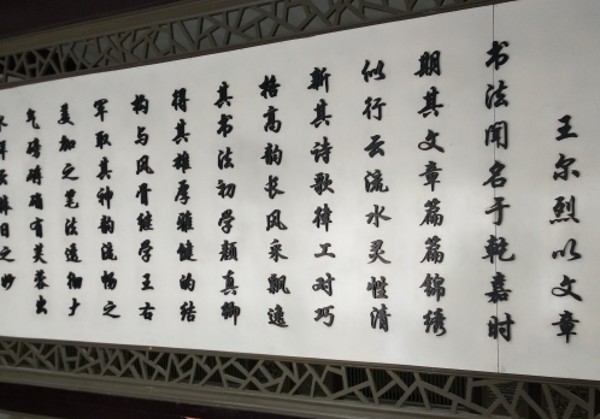 王尔烈以文章
书法闻名于乾嘉时
期其文章篇篇锦绣
似行云流水灵性清
新其诗歌律工对巧
格高韵长风采飘逸
其书法初学颜真卿
得其雄厚雅健的结
构与风骨继学王右
军取其神韵流畅之
美加之笔法透细
气磅礴确有芙蓉出
水日之妙